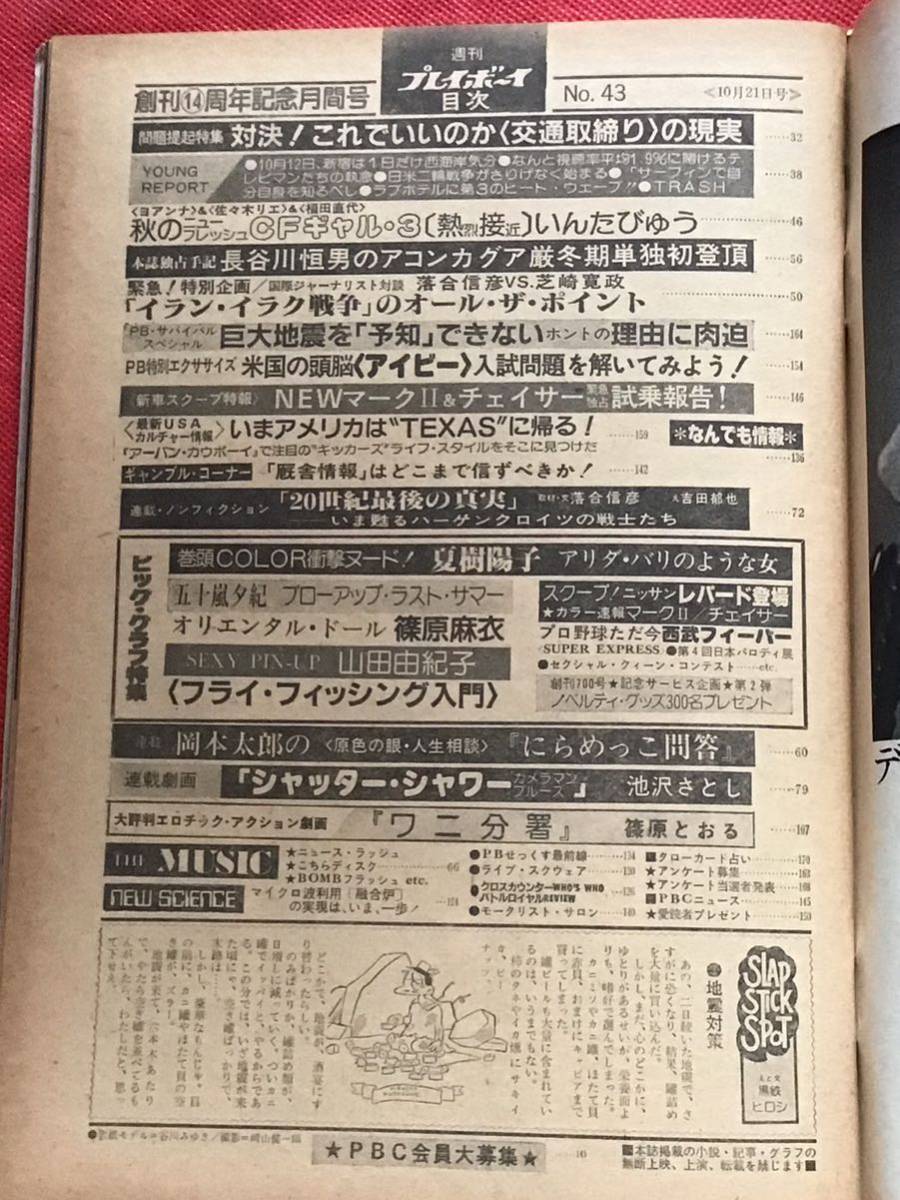 創刊⑭周年記念月間号
週刊
プレイボーイ
目次
No. 43
≪10月21日号≫
問題提起特集 対決!これでいいのか〈交通取締り〉の現実 ……32
YOUNG REPORT
●10月12日、新宿は1日だけ西海岸気分●なんと視聴率平均1.9%に賭けるテ
レビマンたちの執念●日米二輪戦争がさりげなく始まる●「サーフィンで自
分自身を知るべし●ラブホテルに第3のヒート・ウエーブ!!●TRASH ……38
〈ヨアンナ〉&〈佐々木リエ〉&〈福田直代〉
秋のニューフレッシュCFギャル・3〔熱烈接近〕いんたびゅう ……46
本誌独占手記 長谷川恒男のアコンカグア厳冬期単独初登頂 ……56
緊急!特別企画/国際ジャーナリスト対談 落合信彦VS.芝崎寛政
「イラン・イラク戦争」のオール・ザ・ポイント ……50
「PB・サバイバルスペシャル 巨大地震を「予知」できないホントの理由に肉迫 ……164
PB特別エクササイズ 米国の頭脳〈アイビー〉入試問題を解いてみよう! ……154
〈新車スクープ特報〉 NEWマークII&チェイサー緊急独占試乗報告! ……146
〈最新USAカルチャー情報〉いまアメリカは“TEXAS”に帰る!
『アーバン・カウボーイ』で注目の“キッカーズ”ライフ・スタイルをそこに見つけた ……159
＊なんでも情報＊ ……136
ギャンブル・コーナー 「厩舎情報」はどこまで信ずべきか! ……142
連載・ノンフィクション 「20世紀最後の真実」 取材・文 落合信彦 吉田郁也
——いま甦るハーゲンクロイツの戦士たち ……72
ビッグ・グラフ特集
巻頭COLOR衝撃ヌード! 夏樹陽子 アリダ・バリのような女
五十嵐夕紀 ブローアップ・ラスト・サマー
オリエンタル・ドール 篠原麻衣
SEXY PIN-UP 山田由紀子
〈フライ・フィッシング入門〉
スクープ!ニッサンレパード登場
★カラー速報マークII/チェイサー
プロ野球ただ今西武フィーバー
〈SUPER EXPRESS〉●第4回日本パロディ展
●セクシャル・クィーン・コンテスト…etc.
創刊700号★記念サービス企画★第2弾
ノベルティ・グッズ300名プレゼント
連載 岡本太郎の〈原色の眼・人生相談〉『にらめっこ問答』 ……60
連載劇画 「シャッター・シャワーカメラマンブルース」 池沢さとし ……79
大評判エロチック・アクション劇画 『ワニ分署』 篠原とおる ……107
THE MUSIC
★ニュース・ラッシュ
★こちらディスク
★BOMBフラッシュ etc. ……66
NEW SCIENCE
マイクロ波利用〔融合炉〕
の実現は、いま、一歩! ……124
●PBせっくす最前線……134
●ライブ・スクウェア……130
●クロスカウンターWHO'S WHO
バトルロイヤルREVIEW ……126
●モータリスト・サロン……140
■タローカード占い……170
★アンケート募集……163
★アンケート当選者発表……108
■PBCニュース……145
★愛読者プレゼント……150
SLAP STICK SPOT
地震対策
え と 文
黒鉄ヒロシ
あの、二日続いた地震で、さ
すがに恐くなり、結果、罐詰め
を大量に買い込んだ。
しかし、まだ、心のどこかに、
ゆとりがあるせいか、栄養面よ
りも、嗜好で選んでしまった。
カニミソやカニ罐、ほたて貝
に赤貝、おまけにキャビアまで
買ってしまった。
罐ビールも大量に含まれてい
るのは、いうまでもない。
柿のタネやイカ燻にサキイ
カ、ピー
ナッツ
どこかで、地震が、酒宴にす
り替わったらしい。
のみばかりか、罐詰め類が、
日増しに減っていく。ついカニ
罐でイッパイと、やるからであ
る。この分では、いざ地震が来
た頃にゃ、空き罐ばっかりで、
木路は……
しかし、豪華なもんじゃ。目
の前に、カニ罐やほたて貝の空
き罐が、ズラーッ。
地震が来て、六本木あたり
で、やたら空き罐を並べてるも
んがいたら、わたしだと、思っ
て下せえ。
●表紙モデル＝谷川みゆき/撮影＝崎山健一郎
★PBC会員大募集★
10
■本誌掲載の小説・記事・グラフの
無断上映、上演、転載を禁じます■
デ